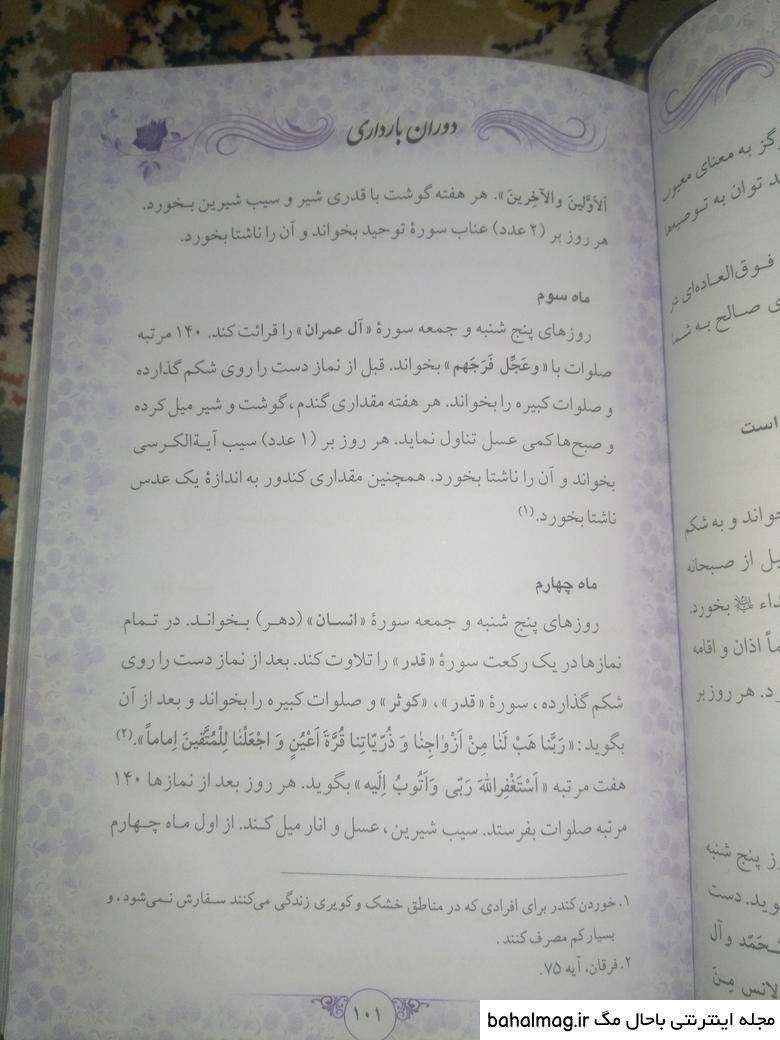 دوران بارداری
اَلاَوَّلینَ والآخِرینَ». هر هفته گوشت با قدری شیر و سیب شیرین بخورد.
هر روز بر (۲ عدد) عناب سورهٔ توحید بخواند و آن را ناشتا بخورد.
ماه سوم
روزهای پنج شنبه و جمعه سورهٔ «آل عمران» را قرائت کند. ۱۴۰ مرتبه
صلوات با «وعَجِّل فَرَجَهم» بخواند. قبل از نماز دست را روی شکم گذارده
و صلوات کبیره را بخواند. هر هفته مقداری گندم، گوشت و شیر میل کرده
و صبح‌ها کمی عسل تناول نماید. هر روز بر (۱ عدد) سیب آیةالکرسی
بخواند و آن را ناشتا بخورد. همچنین مقداری کندور به اندازهٔ یک عدس
ناشتا بخورد.(۱)
ماه چهارم
روزهای پنج شنبه و جمعه سورهٔ «انسان» (دهر) بخواند. در تمام
نمازها در یک رکعت سورهٔ «قدر» را تلاوت کند. بعد از نماز دست را روی
شکم گذارده، سورهٔ «قدر»، «کوثر» و صلوات کبیره را بخواند و بعد از آن
بگوید: «رَبَّنا هَبْ لَنٰا مِنْ اَزْوٰاجِنٰا وَ ذُرِّیّاتِنا قُرَّةَ اَعْیُنٍ وَ اجْعَلْنٰا لِلْمُتَّقینَ اِماماً».(۲)
هفت مرتبه «اَسْتَغْفِرُاللهَ رَبّی وَاَتُوبُ اِلَیه» بگوید. هر روز بعد از نمازها ۱۴۰
مرتبه صلوات بفرستد. سیب شیرین، عسل و انار میل کند. از اول ماه چهارم
۱. خوردن کندر برای افرادی که در مناطق خشک و کویری زندگی می‌کنند سفارش نمی‌شود، و
بسیار کم مصرف کنند.
۲. فرقان، آیه ۷۵.
۱۰۱
به معنای معیوب
توان به توصیه‌ها
فوق‌العاده‌ای در
صالح به شما
است
و به شکم
از صبحانه
بخورد.
اذان و اقامه
هر روز بر
پنج شنبه
دست
وآل
مِنَ
مجله اینترنتی باحال مگ bahalmag.ir